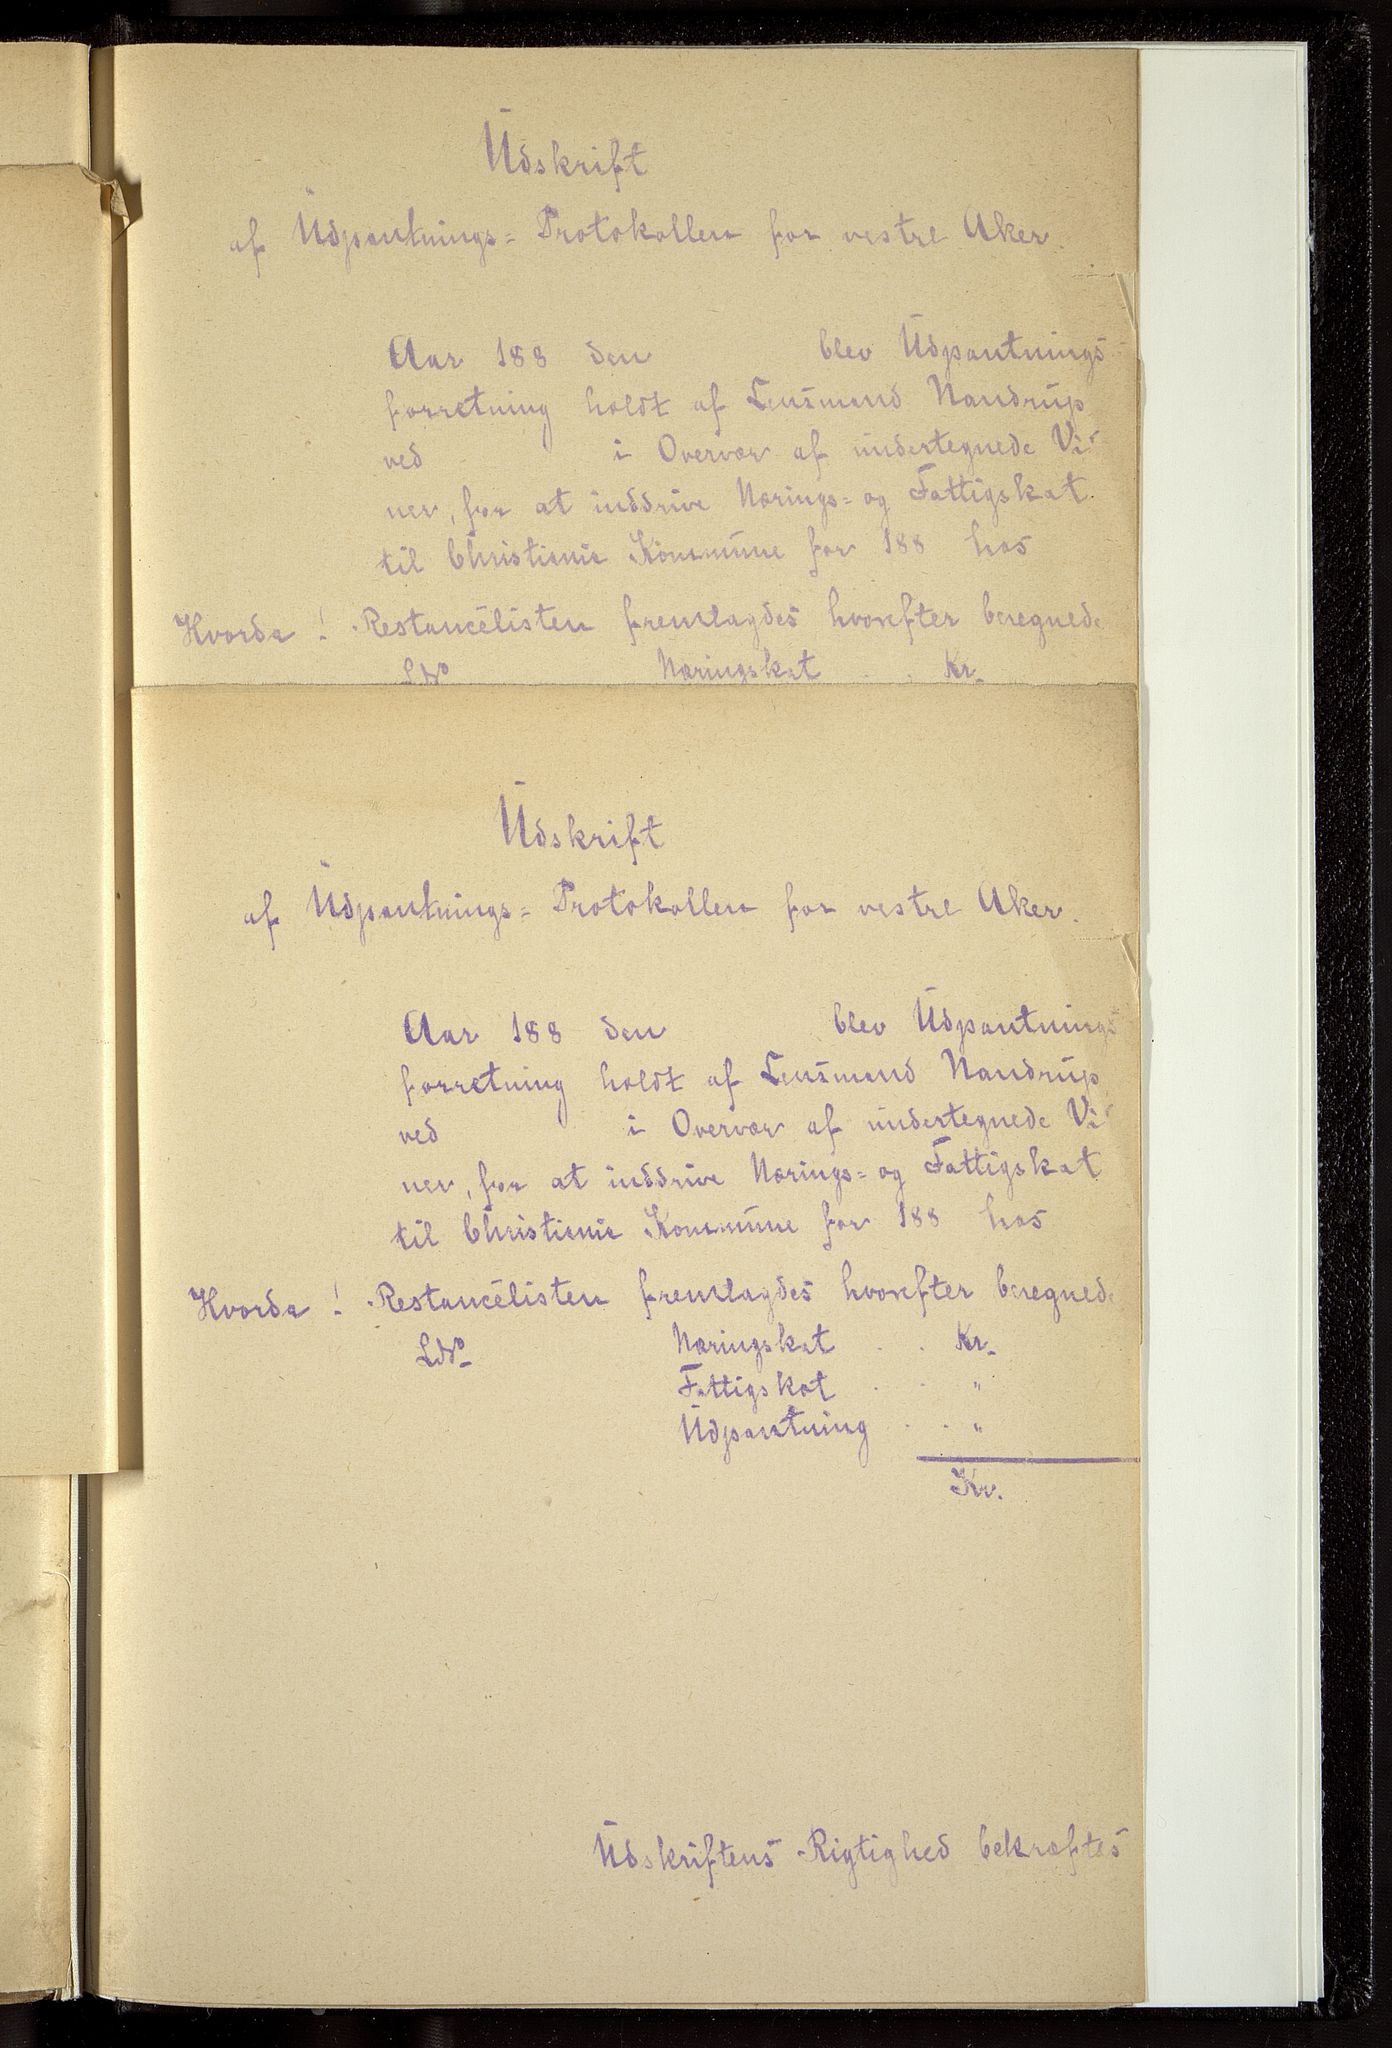 Udskrift
af Udpantnings= Protokollen for vestre Aker.
Aar 188 den blev Udpantnings
forretning holdt af Lensmand Nandrup
ved i Overvær af undertegnede Vi
ner, for at inddrive Nærings= og Fattigskat
til Christiania Kommune for 188 hos
Hvorda ! Restancelisten fremlagdes hvorefter beregnede
LNo Næringskat . . Kr.
Udskrift
af Udpantnings= Protokollen for vestre Aker.
Aar 188 den blev Udpantnings
forretning holdt af Lensmand Nandrup
ved i Overvær af undertegnede Vi
ner, for at inddrive Nærings= og Fattigskat
til Christiania Kommune for 188 hos
Hvorda ! Restancelisten fremlagdes hvorefter beregnede
LNo Næringskat . . Kr.
Fattigskat . . "
Udpantning . . "
Kr.
Udskriftens Rigtighed bekræftes